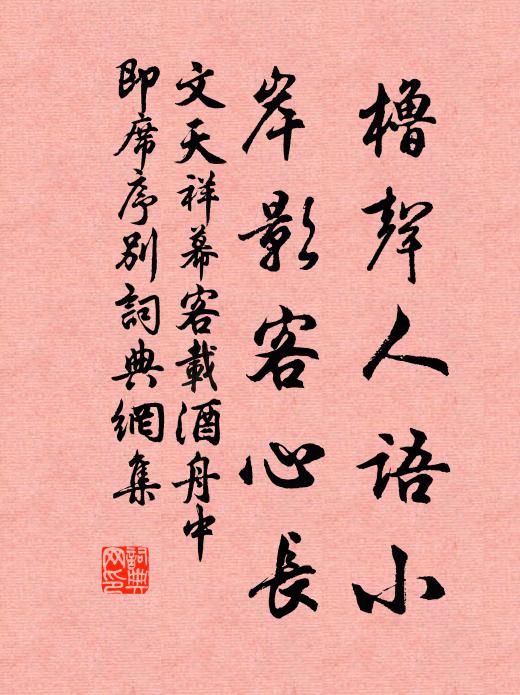 櫓聲人語小
岸影客心長
文天祥幕客載酒舟中
即席序別詞典網集
詞典網印